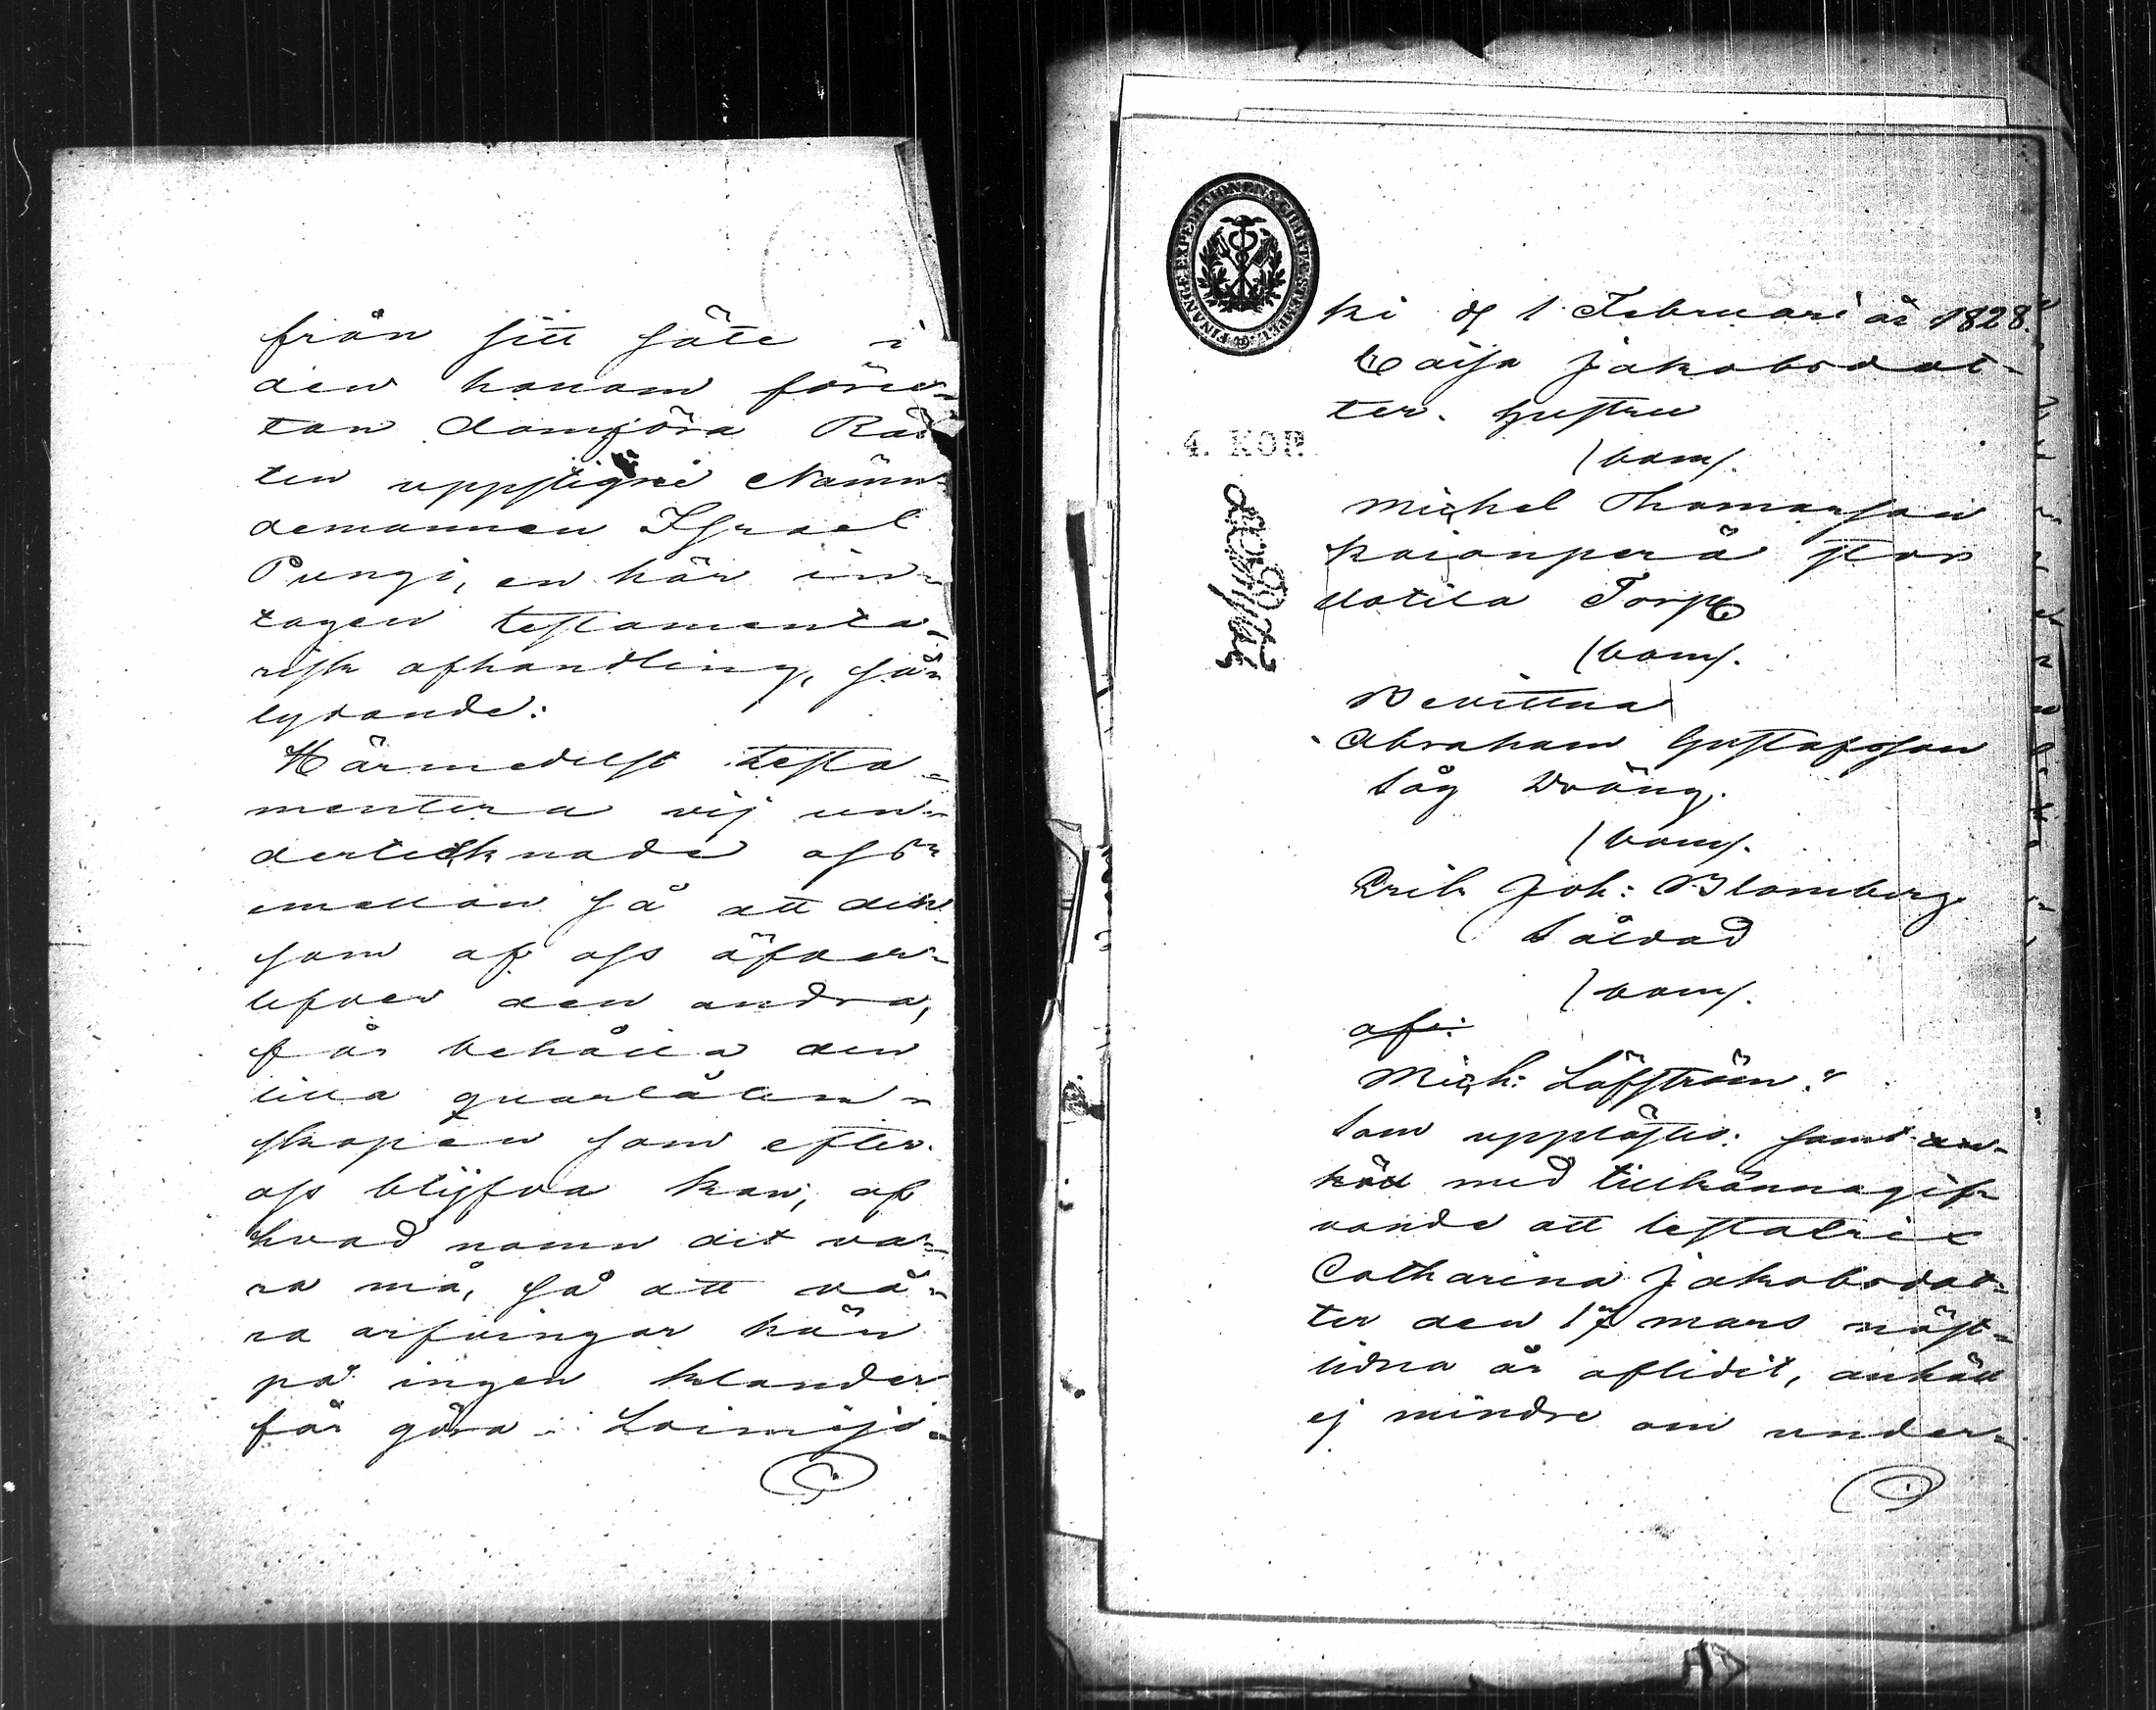 från sitt säte i
den honom föru-
tan domföra Rät
ten uppstigne Nämn-
demannen Israel
Pungi, en här in-
tagen testamenta-
risk afhandling, så-
lydande:
Härmedelst testa-
mentera vij un-
dertecknade oss
emellan så att den
som af oss öfver-
lefver den andra,
får behålla den
lilla quarlåten-
skapen som efter
oss blijfva kan, af
hvad namn det va-
ra må, så att vå-
ra arfvingar här
på ingen klander
får göra. Loimijo-
FINANCE EXPEDITIONENS CHARTÆ STEMPEL
4. KOP.
ki d 1 Februari år 1828."
Caisa Jakobsdot-
ter. hustru
(bom).
Michel Thomasson
Kaianperä stor
 Torp
(bom).
Bevittna
Abraham Gustafsson
Såg Dräng.
(bom).
Erik Joh: Blomberg
Såldad
(bom).
af:
Mich: Löfström."
Som upplästes: samt an-
höll med tillkännagif-
vande att testatrix
Catharina Jakobsdot-
ter den 17 mars näst-
lidna år aflidit, anhöll
ej mindre om under-